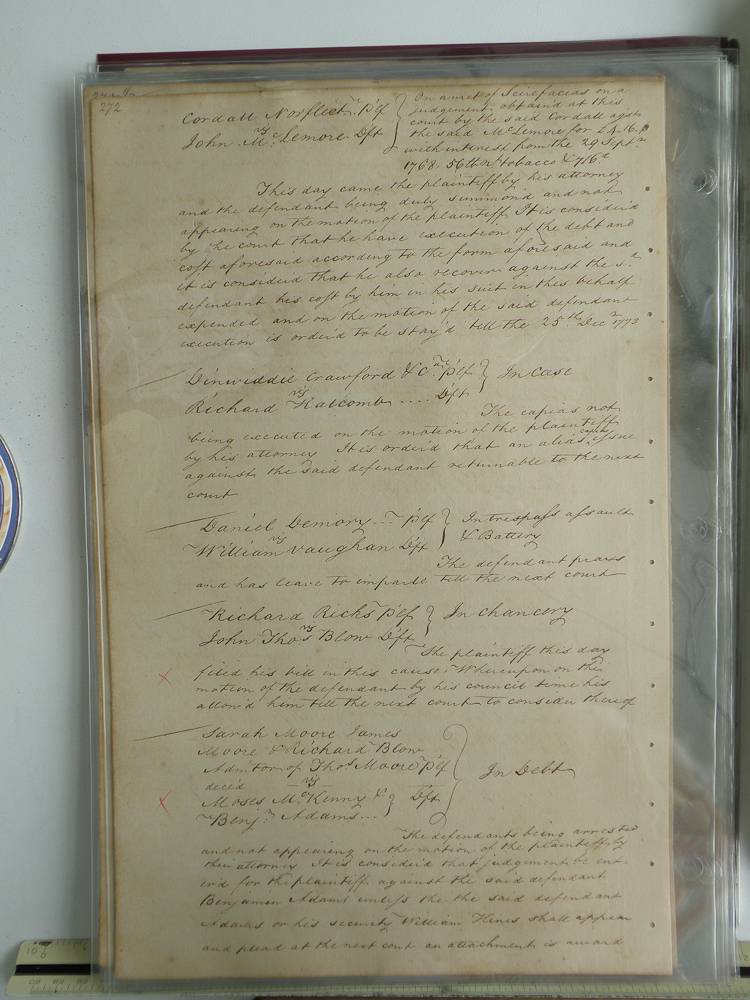 272
Cordall Norflect Plf
vs
John McLemore Dft
On a writ of Scirefacias on a
judgement obtain'd at this
court by the said Cordall agst
the said McLemore for 24.16.
with interest from the 29 Septr
1768. 56 tt nt tobacco & 7/6d
This day came the plaintiff by his attorney
and the defendant being duly summon'd and not
appearing on the motion of the plaintiff It is consider'd
by the court that he have execution of the debt and
cost aforesaid according to the form aforesaid and
it is consider'd that he also recover against the sd
defendant his cost by him in his suit in this behalf
expended and on the motion of the said defendant
execution is order'd to be stay'd till the 25th Decr 1773
Dinwiddie Crawford & Co Plf
vs
Richard Ratcomb .... Dft
In Case
The capias not
being executed on the motion of the plaintiff
by his attorney It is order'd that an alias capias Issue
against the said defendant returnable to the next
court
Daniel Demory ... Plf
vs
William Vaughan Dft
In trespass assault
& Battery
The defendant prays
and has leave to imparle till the next court
Richard Ricks Plf
vs
John Thos Blow Dft
In Chancery
The plaintiff this day
filed his bill in this cause Whereupon on the
motion of the defendant by his council time his
allow'd him till the next court to consider thereof
Sarah Moore James
Moore & Richard Blow
Admtor of Thos Moore Plf
dece'd
vs
Moses McKenny & Dft
Benjn Adams ...
In Debt
The defendants being arrested
and not appearing on the motion of the plaintiff by
their attorney It is consider'd that judgement be ent-
er'd for the plaintiff against the said defendant
Benjamin Adams unless the the said defendant
Adams or his security William Hines shall appear
and plead at the next court an attachment is award